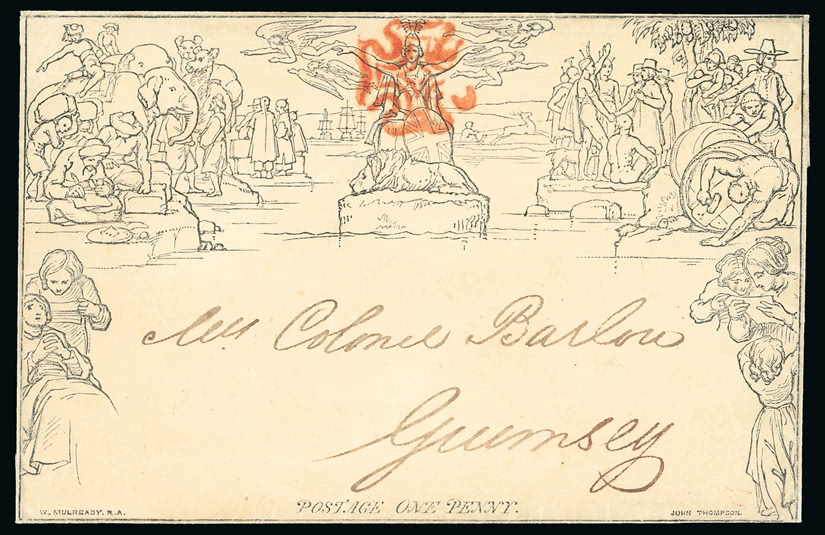 Mrs Colonel Barlow
Guernsey
POSTAGE ONE PENNY.
W. MULREADY, R.A.
JOHN THOMPSON